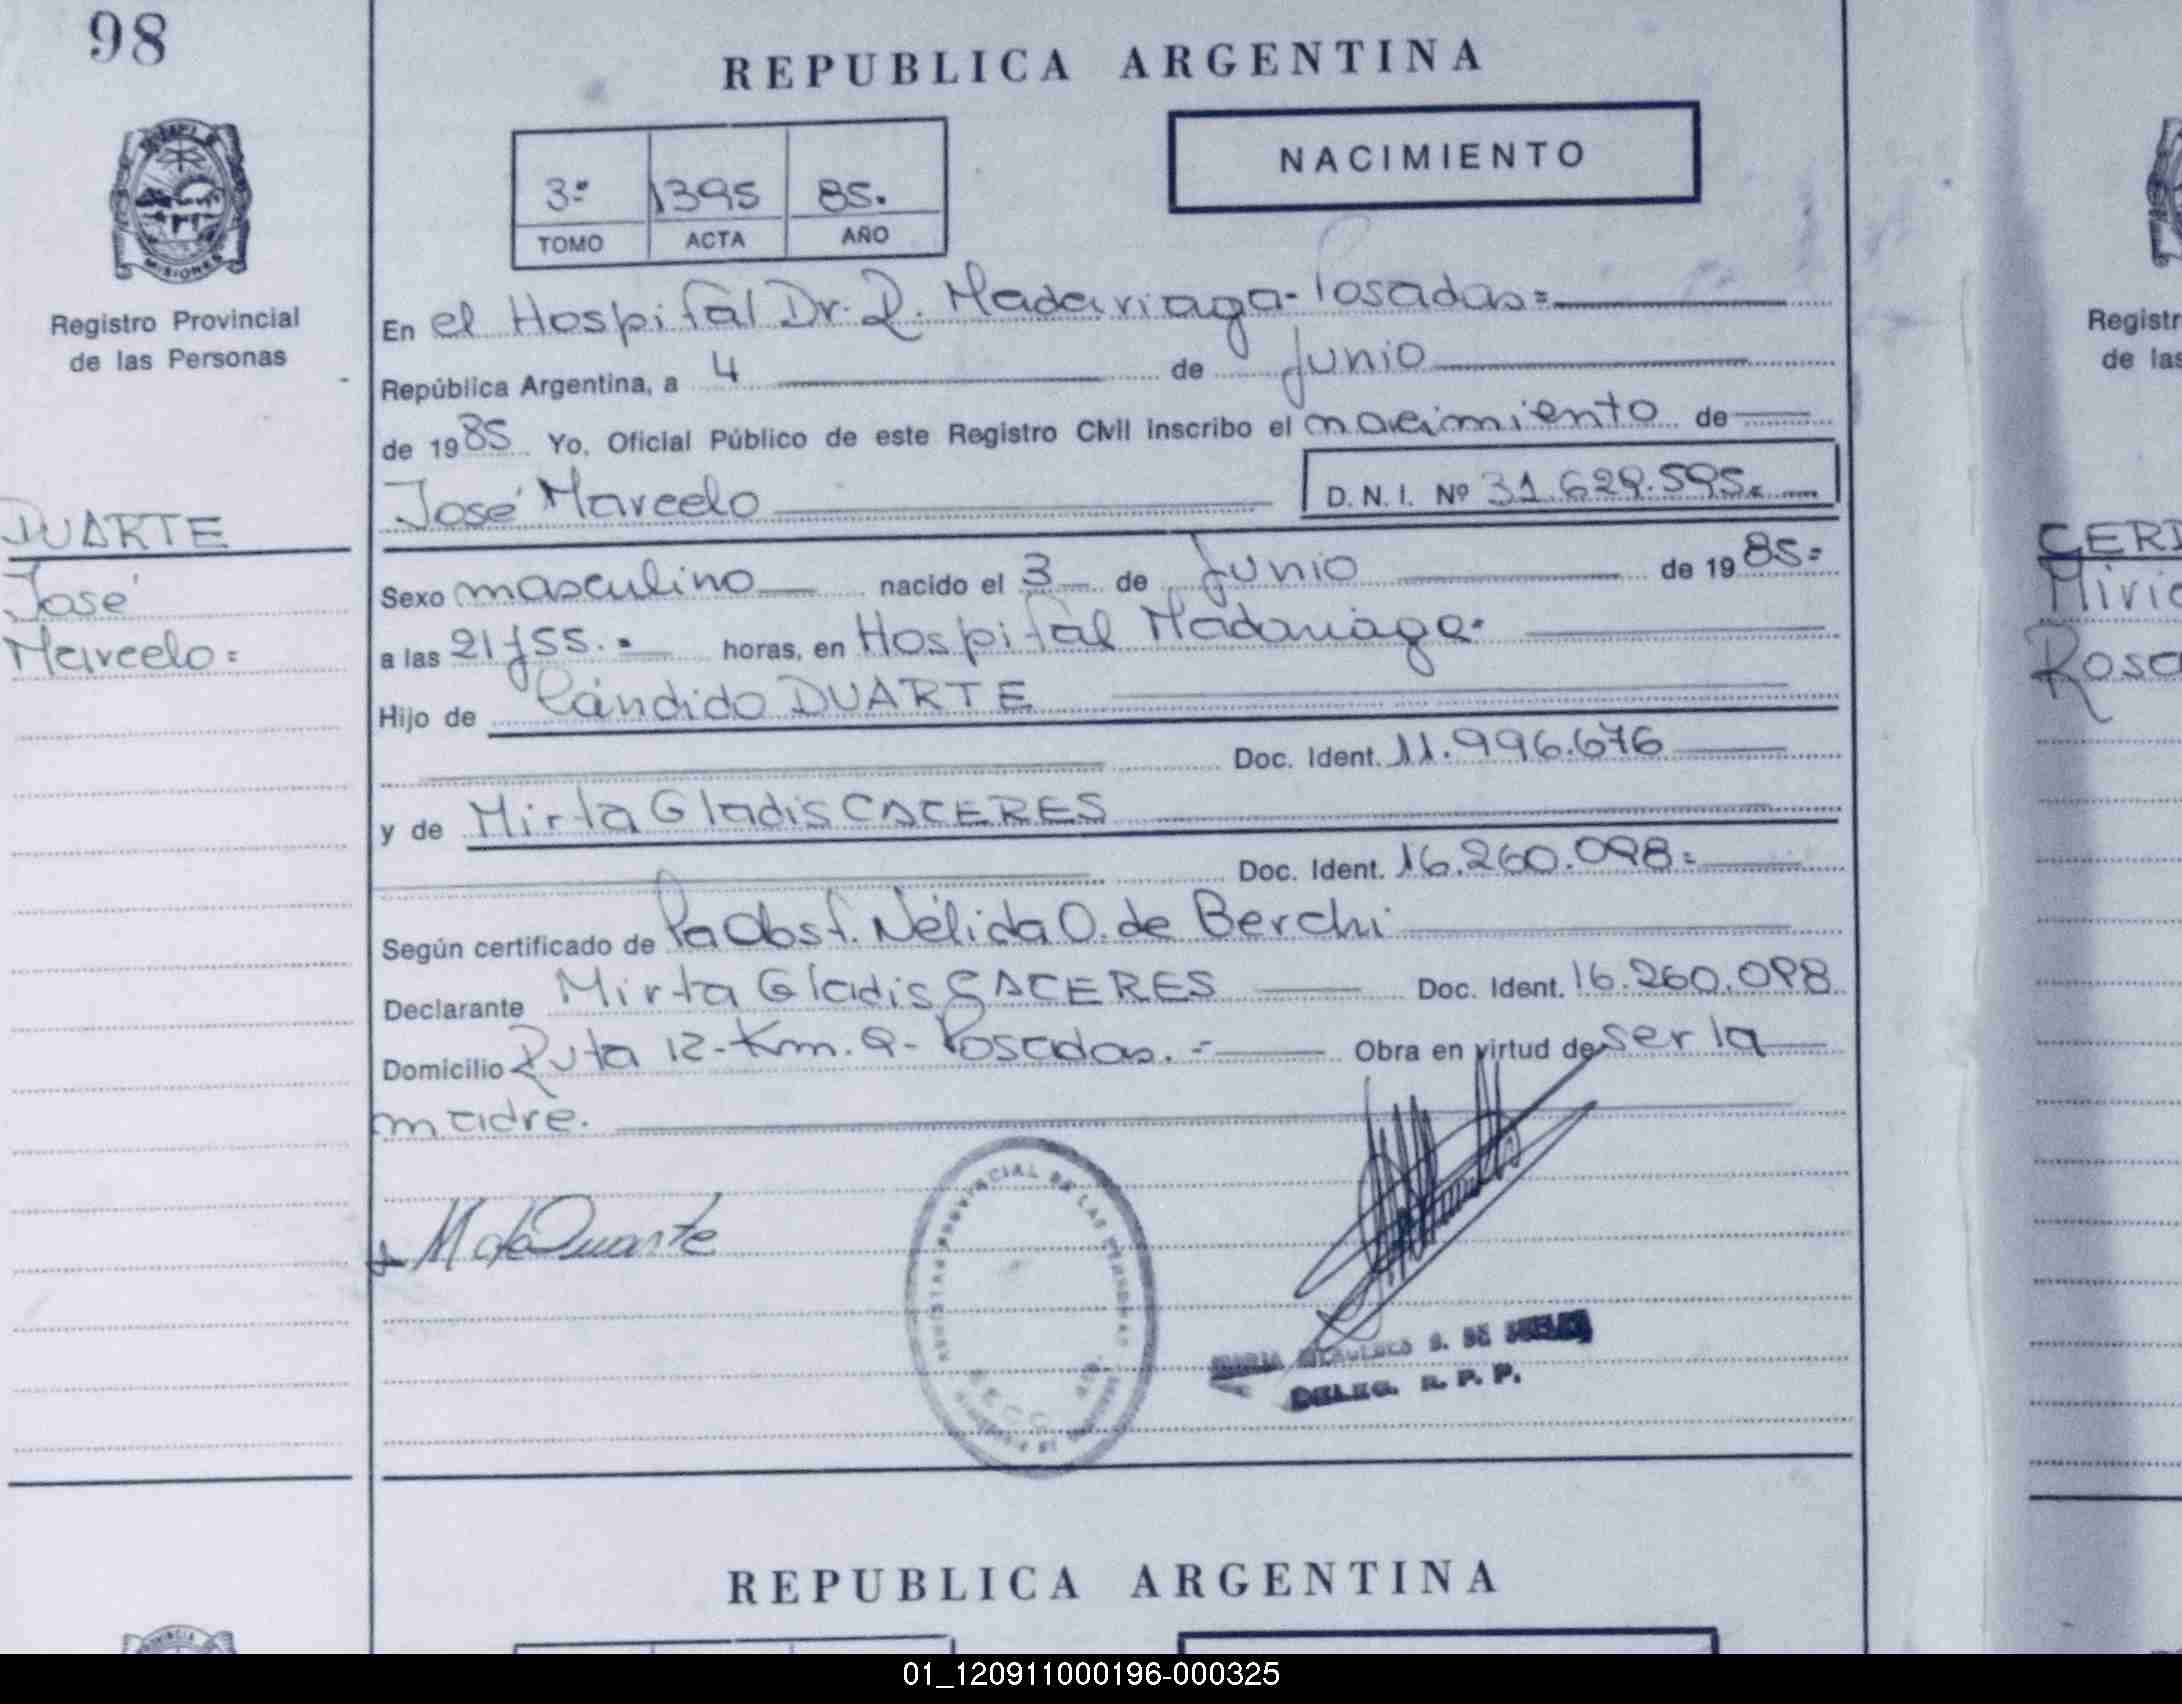 98
REPUBLICA ARGENTINA
NACIMIENTO
3º 1395 85.
TOMO ACTA AÑO
MISIONES
Registro Provincial
de las Personas
En el Hospital Dr. R. Madariaga - Posadas =
República Argentina, a 4 de Junio
de 1985 Yo, Oficial Público de este Registro Civil inscribo el nacimiento de
José Marcelo D. N. I. Nº 31.629.595.
DUARTE
José
Marcelo =
Sexo masculino nacido el 3 de Junio de 1985 =
a las 21 y 55. = horas, en Hospital Madariaga.
Hijo de Cándido DUARTE
Doc. Ident. 11.996.676
y de Mirta Gladis CACERES
Doc. Ident. 16.260.098 =
Según certificado de la Obst. Nélida O. de Berchi
Declarante Mirta Gladis CACERES Doc. Ident. 16.260.098
Domicilio Ruta 12 - Km. 9 - Posadas. = Obra en virtud de ser la
madre.
Duarte
REGISTRO PROVINCIAL DE LAS PERSONAS
S. DE
DELEG. R. P. P.
Registr
de las
CERI
Miri
Rosa
REPUBLICA ARGENTINA
PROVINCIA
01_120911000196-000325